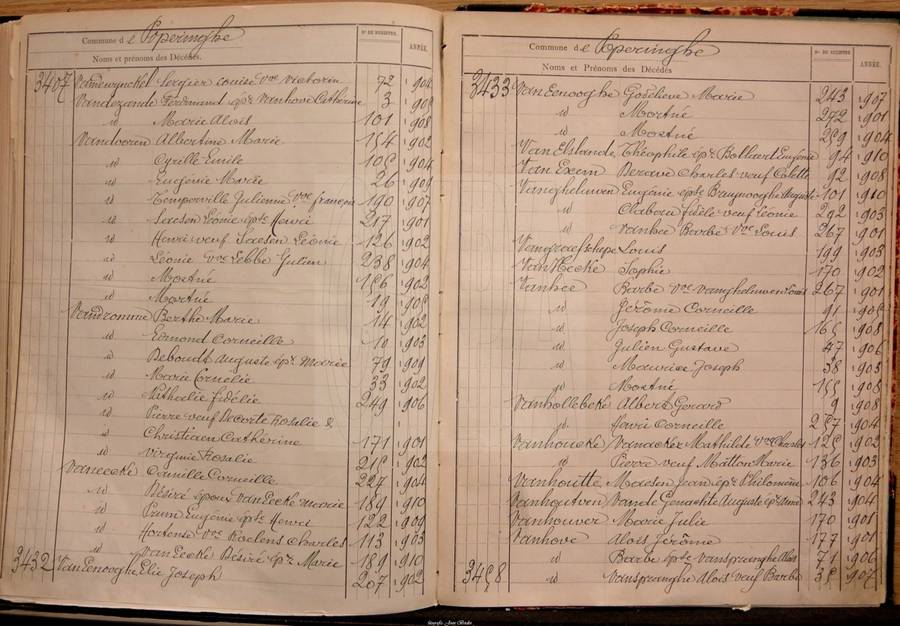 Commune de Poperinghe
N° DE REGISTRE. ANNÉE.
Noms et prénoms des Décédés.
3407 Vandewynckel Sergier Louise Vve Victorin 72 904
Vandezande Ferdinand ép. Vanhove Catherine 3 905
id Marie Alois 101 908
Vandooren Albertine Marie 154 902
id Cyrille Emile 105 904
id Eugénie Marie 26 909
id Temperville Julienne Vve françois 190 907
id Saesen Léonie épse Henri 217 901
id Henri veuf Saesen Léonie 126 902
id Léonie Vve Lebbe Julien 238 904
id Mortné 156 902
id Mortné 19 905
Vandromme Berthe Marie 14 902
id Edmond Corneille 10 903
id Deboudt Auguste épx Marie 79 909
id Marie Cornélie 33 902
id Nathalie fidélie 249 906
id Pierre veuf Decorte Rosalie &
id Christiaen Catherine 171 901
id Virginie Rosalie 215 902
Vaneecke Camille Corneille 227 904
id Désiré époux Van Eecke Marie 189 910
id Prum Eugénie épse Henri 122 909
id Hortense Vve Roelens Charles 113 903
id Van Eecke Désiré épx Marie 189 910
3432 Van Eenooghe Elie Joseph 207 902
Commune de Poperinghe
N° DE REGISTRE. ANNÉE.
Noms et Prénoms des Décédés
3433 Van Eenooghe Godelieve Marie 243 907
id Mortné 272 901
id Mortné 259 904
Van Elslande Théophile épx Bollaert Eugénie 94 910
Van Exem Derave Charles veuf Colette 92 908
Vangheluwen Eugénie épse Bruynooghe Auguste 101 910
id Clabeau fidèle veuf Léonie 292 903
id Vanhee Barbe Vve Louis 267 901
Vangraefschepe Louis 199 903
Van Hecke Sophie 170 902
Vanhee Barbe Vve Vangheluwen Louis 267 901
id Jérôme Corneille 91 905
id Joseph Corneille 165 908
id Julien Gustave 47 906
id Maurice Joseph 38 903
id Mortné 155 908
Vanhollebeke Albert Gerard 9 908
id Marie Corneille 257 904
Vanhoucke Vanacker Mathilde Vve Charles 125 902
id Pierre veuf Matton Marie 136 903
Vanhoutte Maesen Jean épx Philomène 106 904
Vanhoutven Vande Genachte Auguste épx 243 904
Vanhouver Marie Julie 170 901
Vanhove Alois Jérôme 177 901
id Barbe épse Vanspranghe Alois 71 906
3458 id Vanspranghe Alois veuf Barbe 35 907